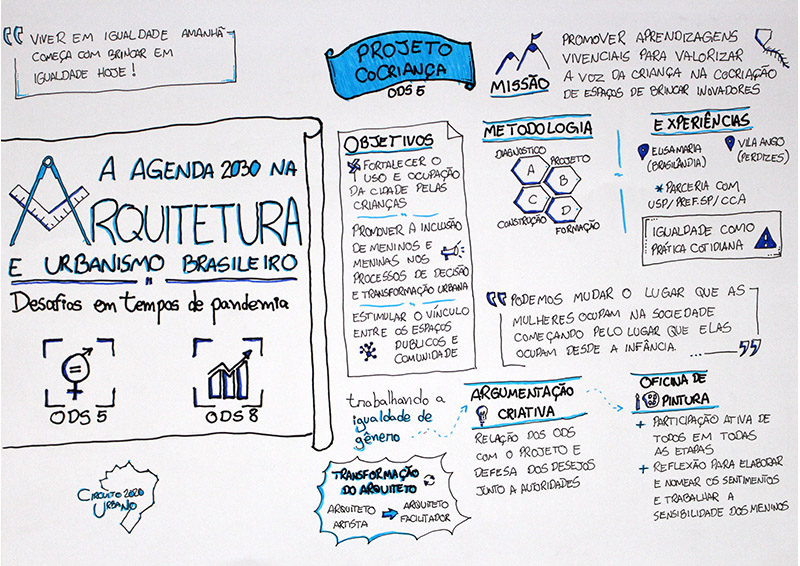 VIVER EM IGUALDADE AMANHÃ
COMEÇA COM BRINCAR EM
IGUALDADE HOJE!
A AGENDA 2030 NA
ARQUITETURA
E URBANISMO BRASILEIRO
Desafios em tempos de pandemia
ODS 5
ODS 8
CIRCUITO 2020
URBANO
PROJETO
COCRIANÇA
ODS 5
MISSÃO
PROMOVER APRENDIZAGENS
VIVENCIAIS PARA VALORIZAR
A VOZ DA CRIANÇA NA COCRIAÇÃO
DE ESPAÇOS DE BRINCAR INOVADORES
OBJETIVOS
FORTALECER O
USO E OCUPAÇÃO
DA CIDADE PELAS
CRIANÇAS
PROMOVER A INCLUSÃO
DE MENINOS E
MENINAS NOS
PROCESSOS DE DECISÃO
E TRANSFORMAÇÃO URBANA
ESTIMULAR O VÍNCULO
ENTRE OS ESPAÇOS
PUBLICOS E
COMUNIDADE
METODOLOGIA
DIAGNOSTICO
PROJETO
A
B
C
D
CONSTRUÇÃO
FORMAÇÃO
EXPERIÊNCIAS
EUSAMARIA
(BRASILÂNDIA)
VILA ANGO
(PERDIZES)
* PARCERIA COM
USP/PREF.SP/CCA
IGUALDADE COMO
PRÁTICA COTIDIANA
PODEMOS MUDAR O LUGAR QUE AS
MULHERES OCUPAM NA SOCIEDADE
COMEÇANDO PELO LUGAR QUE ELAS
OCUPAM DESDE A INFÂNCIA. ...
trabalhando a
igualdade de
gênero
ARGUMENTAÇÃO
CRIATIVA
RELAÇÃO DOS ODS
COM O PROJETO E
DEFESA DOS DESEJOS
JUNTO A AUTORIDADES
OFICINA DE
PINTURA
+ PARTICIPAÇÃO ATIVA DE
TODOS EM TODAS
AS ETAPAS
+ REFLEXÃO PARA ELABORAR
E NOMEAR OS SENTIMENTOS
E TRABALHAR A
SENSIBILIDADE DOS MENINOS
TRANSFORMAÇÃO
DO ARQUITETO
ARQUITETO
ARTISTA
ARQUITETO
FACILITADOR